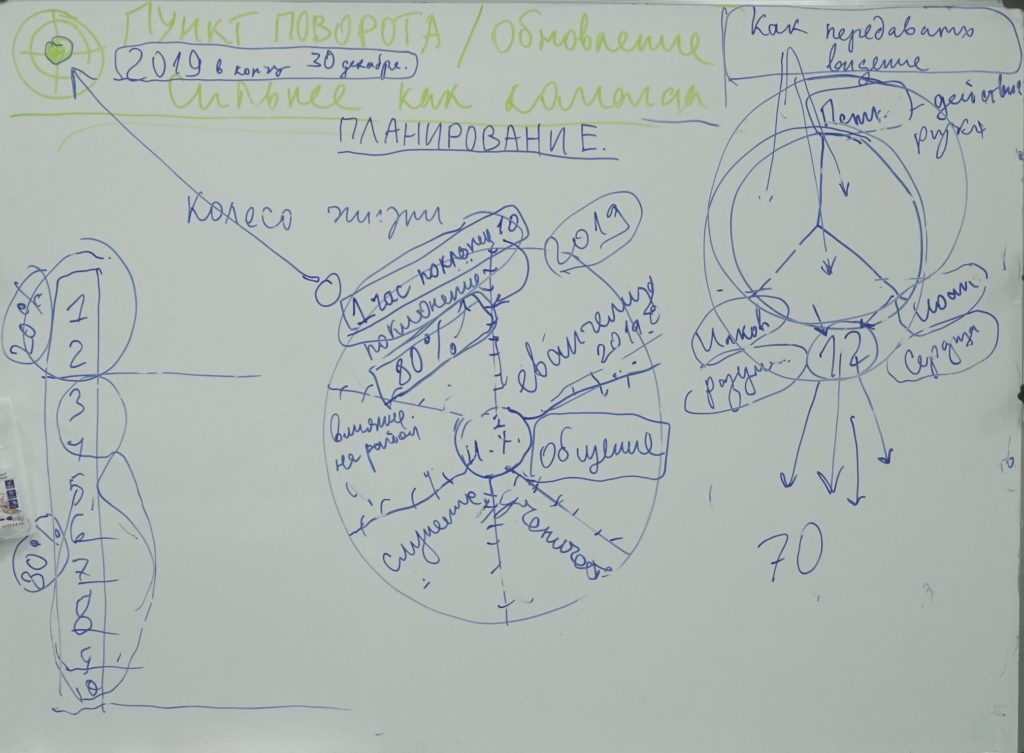 ПУНКТ ПОВОРОТА / Обновление
2019 в концу 30 декабре.
сильнее как команда
ПЛАНИРОВАНИЕ.
Колесо жизни
2019
1 час поклонен 10
поклонение
80%
евангелиз
2019 г
влияние
на район
И.Х.
Общение
служение
ученичест
20%
1
2
3
4
5
6
7
8
9
10
80%
Как передавать
видение
Петр. - действие
руках
Иаков
разум
Иоан
Сердца
12
70